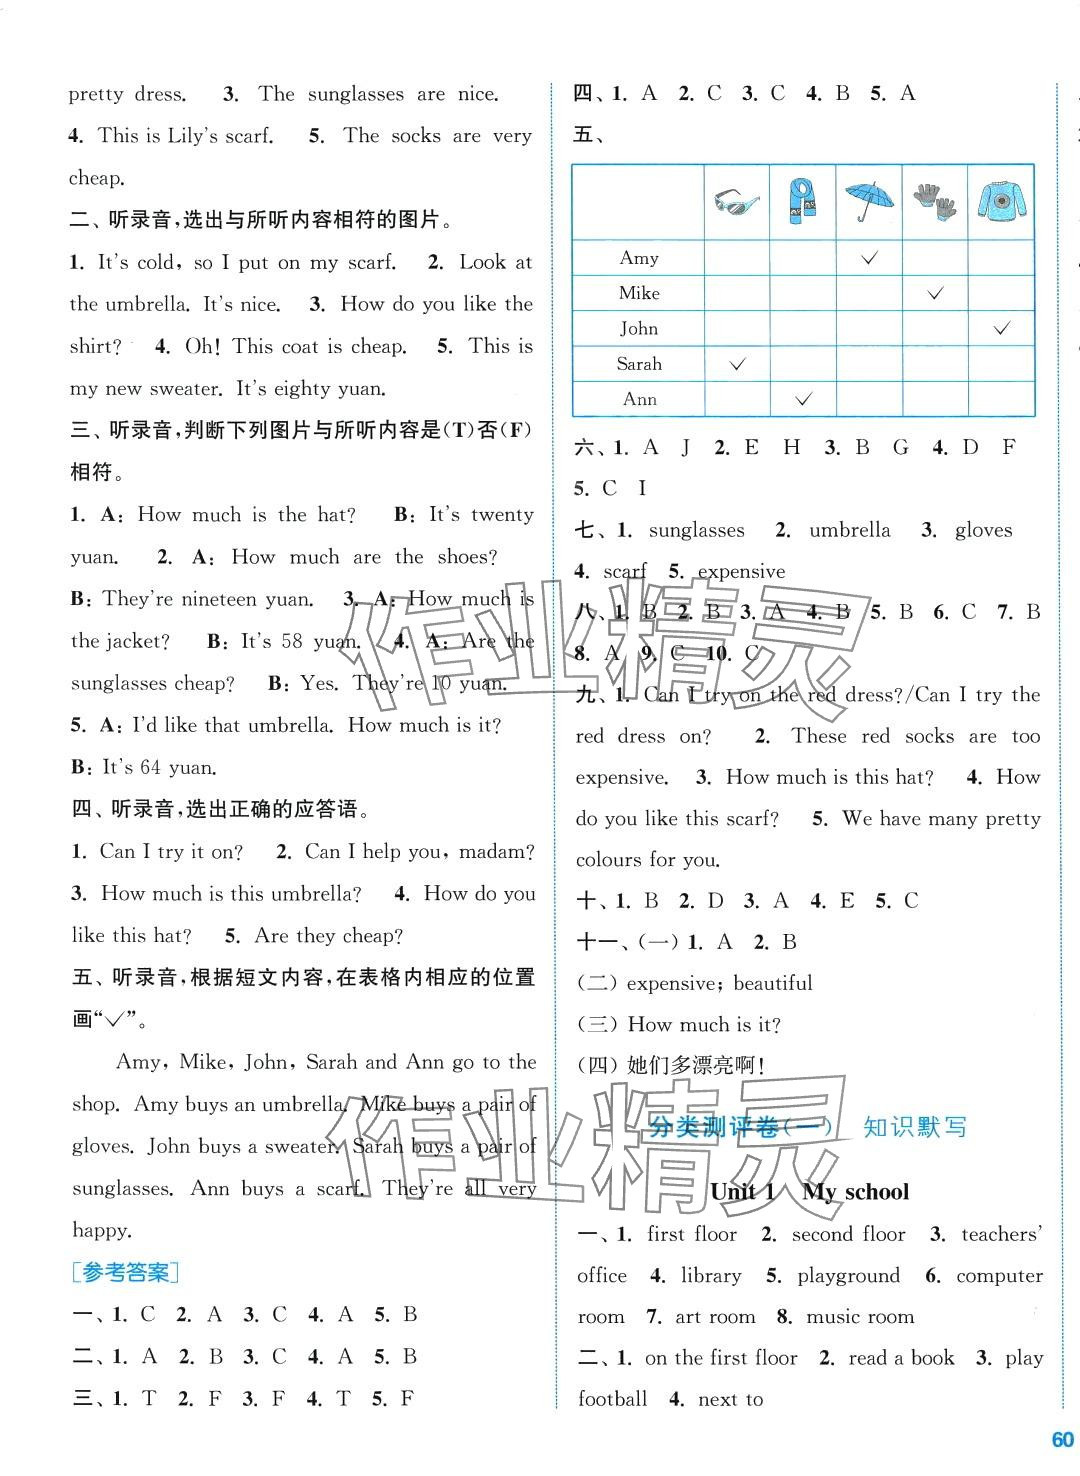 pretty dress. 3. The sunglasses are nice.
4. This is Lily's scarf. 5. The socks are very
cheap.
二、听录音,选出与所听内容相符的图片。
1. It's cold, so I put on my scarf. 2. Look at
the umbrella. It's nice. 3. How do you like the
shirt? 4. Oh! This coat is cheap. 5. This is
my new sweater. It's eighty yuan.
三、听录音,判断下列图片与所听内容是(T)否(F)
相符。
1. A: How much is the hat? B: It's twenty
yuan. 2. A: How much are the shoes?
B: They're nineteen yuan. 3. A: How much is
the jacket? B: It's 58 yuan. 4. A: Are the
sunglasses cheap? B: Yes. They're 10 yuan.
5. A: I'd like that umbrella. How much is it?
B: It's 64 yuan.
四、听录音,选出正确的应答语。
1. Can I try it on? 2. Can I help you, madam?
3. How much is this umbrella? 4. How do you
like this hat? 5. Are they cheap?
五、听录音,根据短文内容,在表格内相应的位置
画“✓”。
Amy, Mike, John, Sarah and Ann go to the
shop. Amy buys an umbrella. Mike buys a pair of
gloves. John buys a sweater. Sarah buys a pair of
sunglasses. Ann buys a scarf. They're all very
happy.
[参考答案]
一、1. C 2. A 3. C 4. A 5. B
二、1. A 2. B 3. C 4. A 5. B
三、1. T 2. F 3. F 4. T 5. F
四、1. A 2. C 3. C 4. B 5. A
五、
Amy ✓
Mike ✓
John ✓
Sarah ✓
Ann ✓
六、1. A J 2. E H 3. B G 4. D F
5. C I
七、1. sunglasses 2. umbrella 3. gloves
4. scarf 5. expensive
八、1. B 2. B 3. A 4. B 5. B 6. C 7. B
8. A 9. C 10. C
九、1. Can I try on the red dress?/Can I try the
red dress on? 2. These red socks are too
expensive. 3. How much is this hat? 4. How
do you like this scarf? 5. We have many pretty
colours for you.
十、1. B 2. D 3. A 4. E 5. C
十一、(一)1. A 2. B
(二) expensive; beautiful
(三) How much is it?
(四) 她们多漂亮啊!
分类测评卷(一) 知识默写
Unit 1 My school
一、1. first floor 2. second floor 3. teachers'
office 4. library 5. playground 6. computer
room 7. art room 8. music room
二、1. on the first floor 2. read a book 3. play
football 4. next to
60
作业精灵
作业精灵